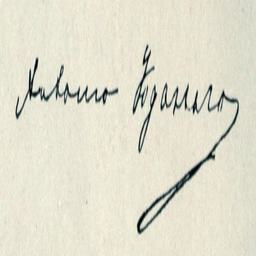 Antonio Fogazzaro